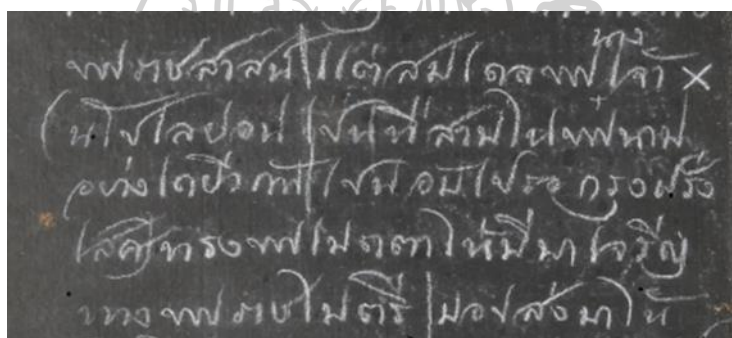 พระราชสาสน์ แต่สมเดจพระเจ้า ×
(นโปเลยอน เปนที่สามในพระนาม
อย่างเดยีวกัน เปนอมเปรอ กรุงฝรั่ง
เสศทรงพระเมตตาให้มีมาเจรีญ
ทางพระราชไมตรี มอบส่งมาให้